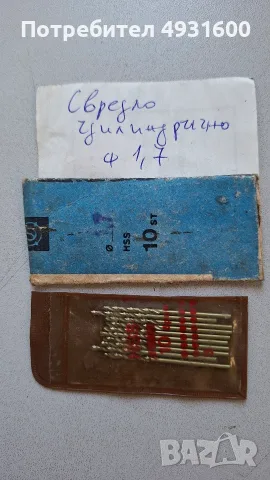 Потребител 4931600
Свредло
цилиндрично
ф 1,7
Ø 1,7
HSS
10 ST
HSS
10
BAZAR